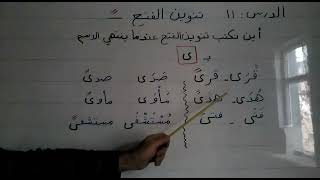 الدرس: ١١ تنوين الفتح ـً
أين نكتب تنوين الفتح عندما ينتهي الاسم
بـ ى
قُرَى - قرىً صَدَى صدىً
هُدَى - هدىً مَأْوَى مأوىً
فَتَى - فتىً مُسْتَشْفَى مستشفىً